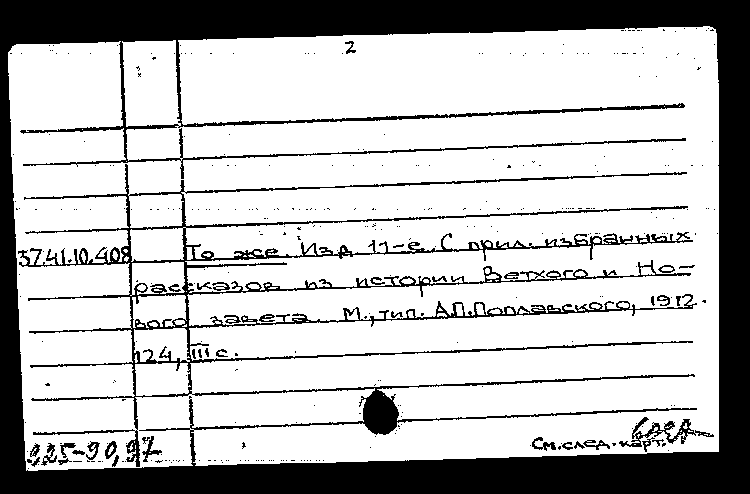 2
37.41.10.408 То же. Изд. 11-е. С прил. избранных
рассказов из истории Ветхого и Но-
вого завета. М., тип. А.П.Поплавского, 1912.
124, III с.
См. след. карт.